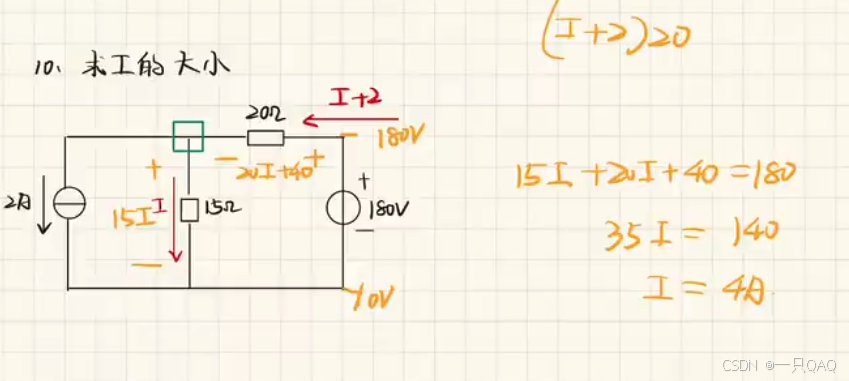 (I+2)20
10、求I的大小
I+2
20Ω
180V
+
- 20I+40 +
15I+20I+40=180
2A
15I
I
15Ω
+
180V
-
35I= 140
-
I= 4A.
0V
CSDN @一只QAQ